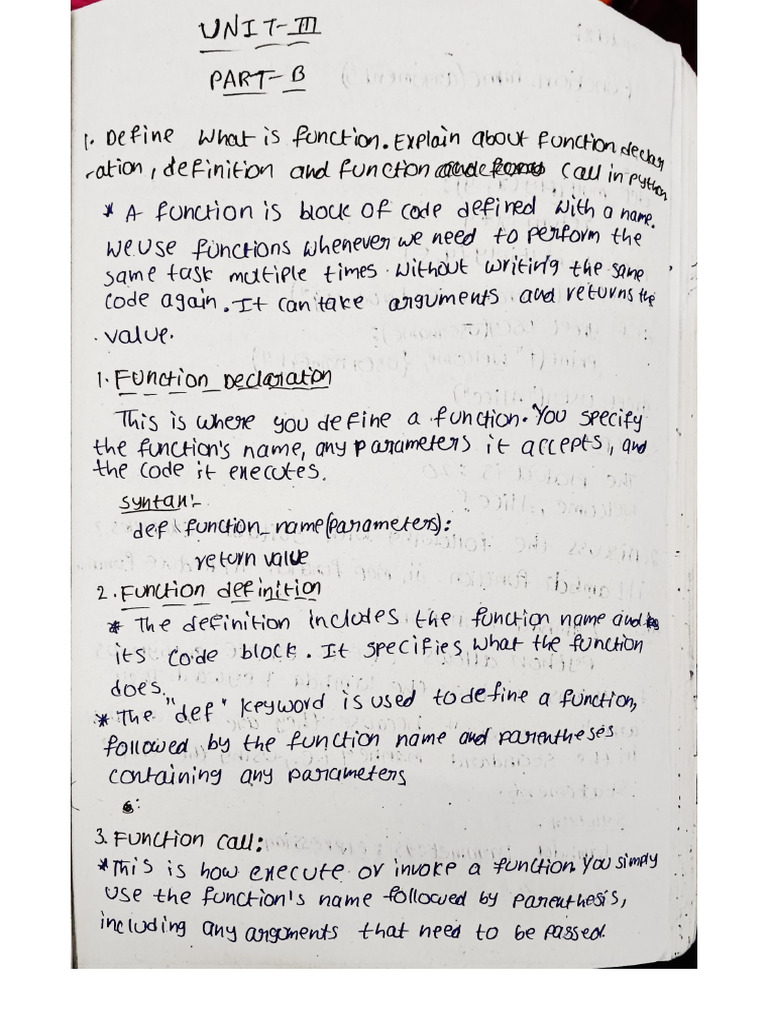 UNIT-III
PART-B
1. Define what is function. Explain about function declar
-ation, definition and function call in python
* A function is block of code defined with a name.
We use functions whenever we need to perform the
same task multiple times without writing the same
code again. It can take arguments and returns the
value.
1. Function Declaration
This is where you define a function. You specify
the function's name, any parameters it accepts, and
the code it executes.
syntax:-
def function_name(parameters):
return value
2. Function definition
* The definition includes the function name and
its code block. It specifies what the function
does.
* The "def" keyword is used to define a function,
followed by the function name and parentheses
containing any parameters
3. Function call:
* This is how execute or invoke a function. You simply
use the function's name followed by parenthesis,
including any arguments that need to be passed.